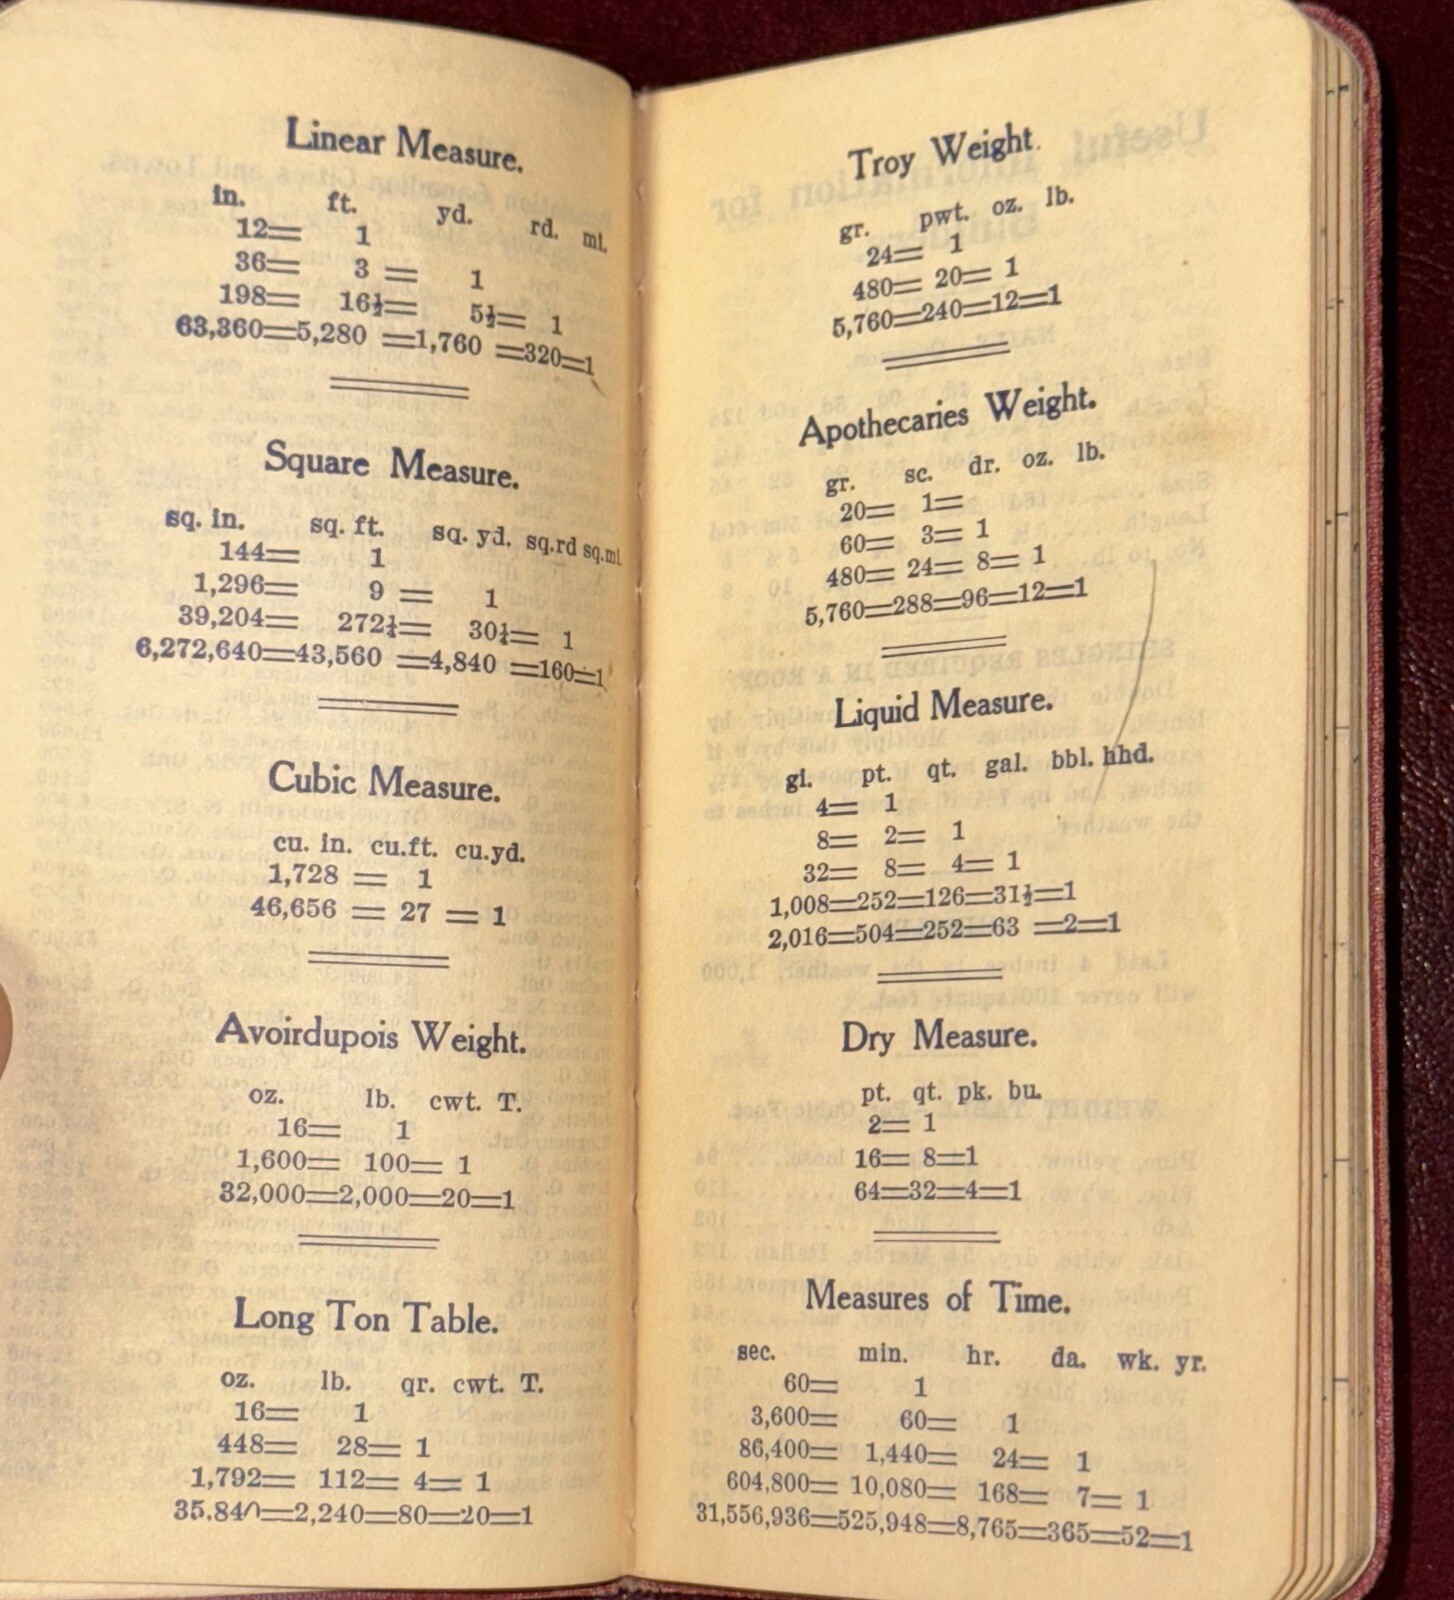 Linear Measure.
in. ft. yd. rd. mi.
12= 1
36= 3 = 1
198= 16½= 5½= 1
63,360=5,280 =1,760 =320=1
Square Measure.
sq. in. sq. ft. sq. yd. sq.rd sq.mi
144= 1
1,296= 9 = 1
39,204= 272¼= 30¼= 1
6,272,640=43,560 =4,840 =160=1
Cubic Measure.
cu. in. cu.ft. cu.yd.
1,728 = 1
46,656 = 27 = 1
Avoirdupois Weight.
oz. lb. cwt. T.
16= 1
1,600= 100= 1
32,000=2,000=20=1
Long Ton Table.
oz. lb. qr. cwt. T.
16= 1
448= 28= 1
1,792= 112= 4= 1
35.840=2,240=80=20=1
Troy Weight.
gr. pwt. oz. lb.
24= 1
480= 20= 1
5,760=240=12=1
Apothecaries Weight.
gr. sc. dr. oz. lb.
20= 1=
60= 3= 1
480= 24= 8= 1
5,760=288=96=12=1
Liquid Measure.
gl. pt. qt. gal. bbl. hhd.
4= 1
8= 2= 1
32= 8= 4= 1
1,008=252=126=31½=1
2,016=504=252=63 =2=1
Dry Measure.
pt. qt. pk. bu.
2= 1
16= 8=1
64=32=4=1
Measures of Time.
sec. min. hr. da. wk. yr.
60= 1
3,600= 60= 1
86,400= 1,440= 24= 1
604,800= 10,080= 168= 7= 1
31,556,936=525,948=8,765=365=52=1